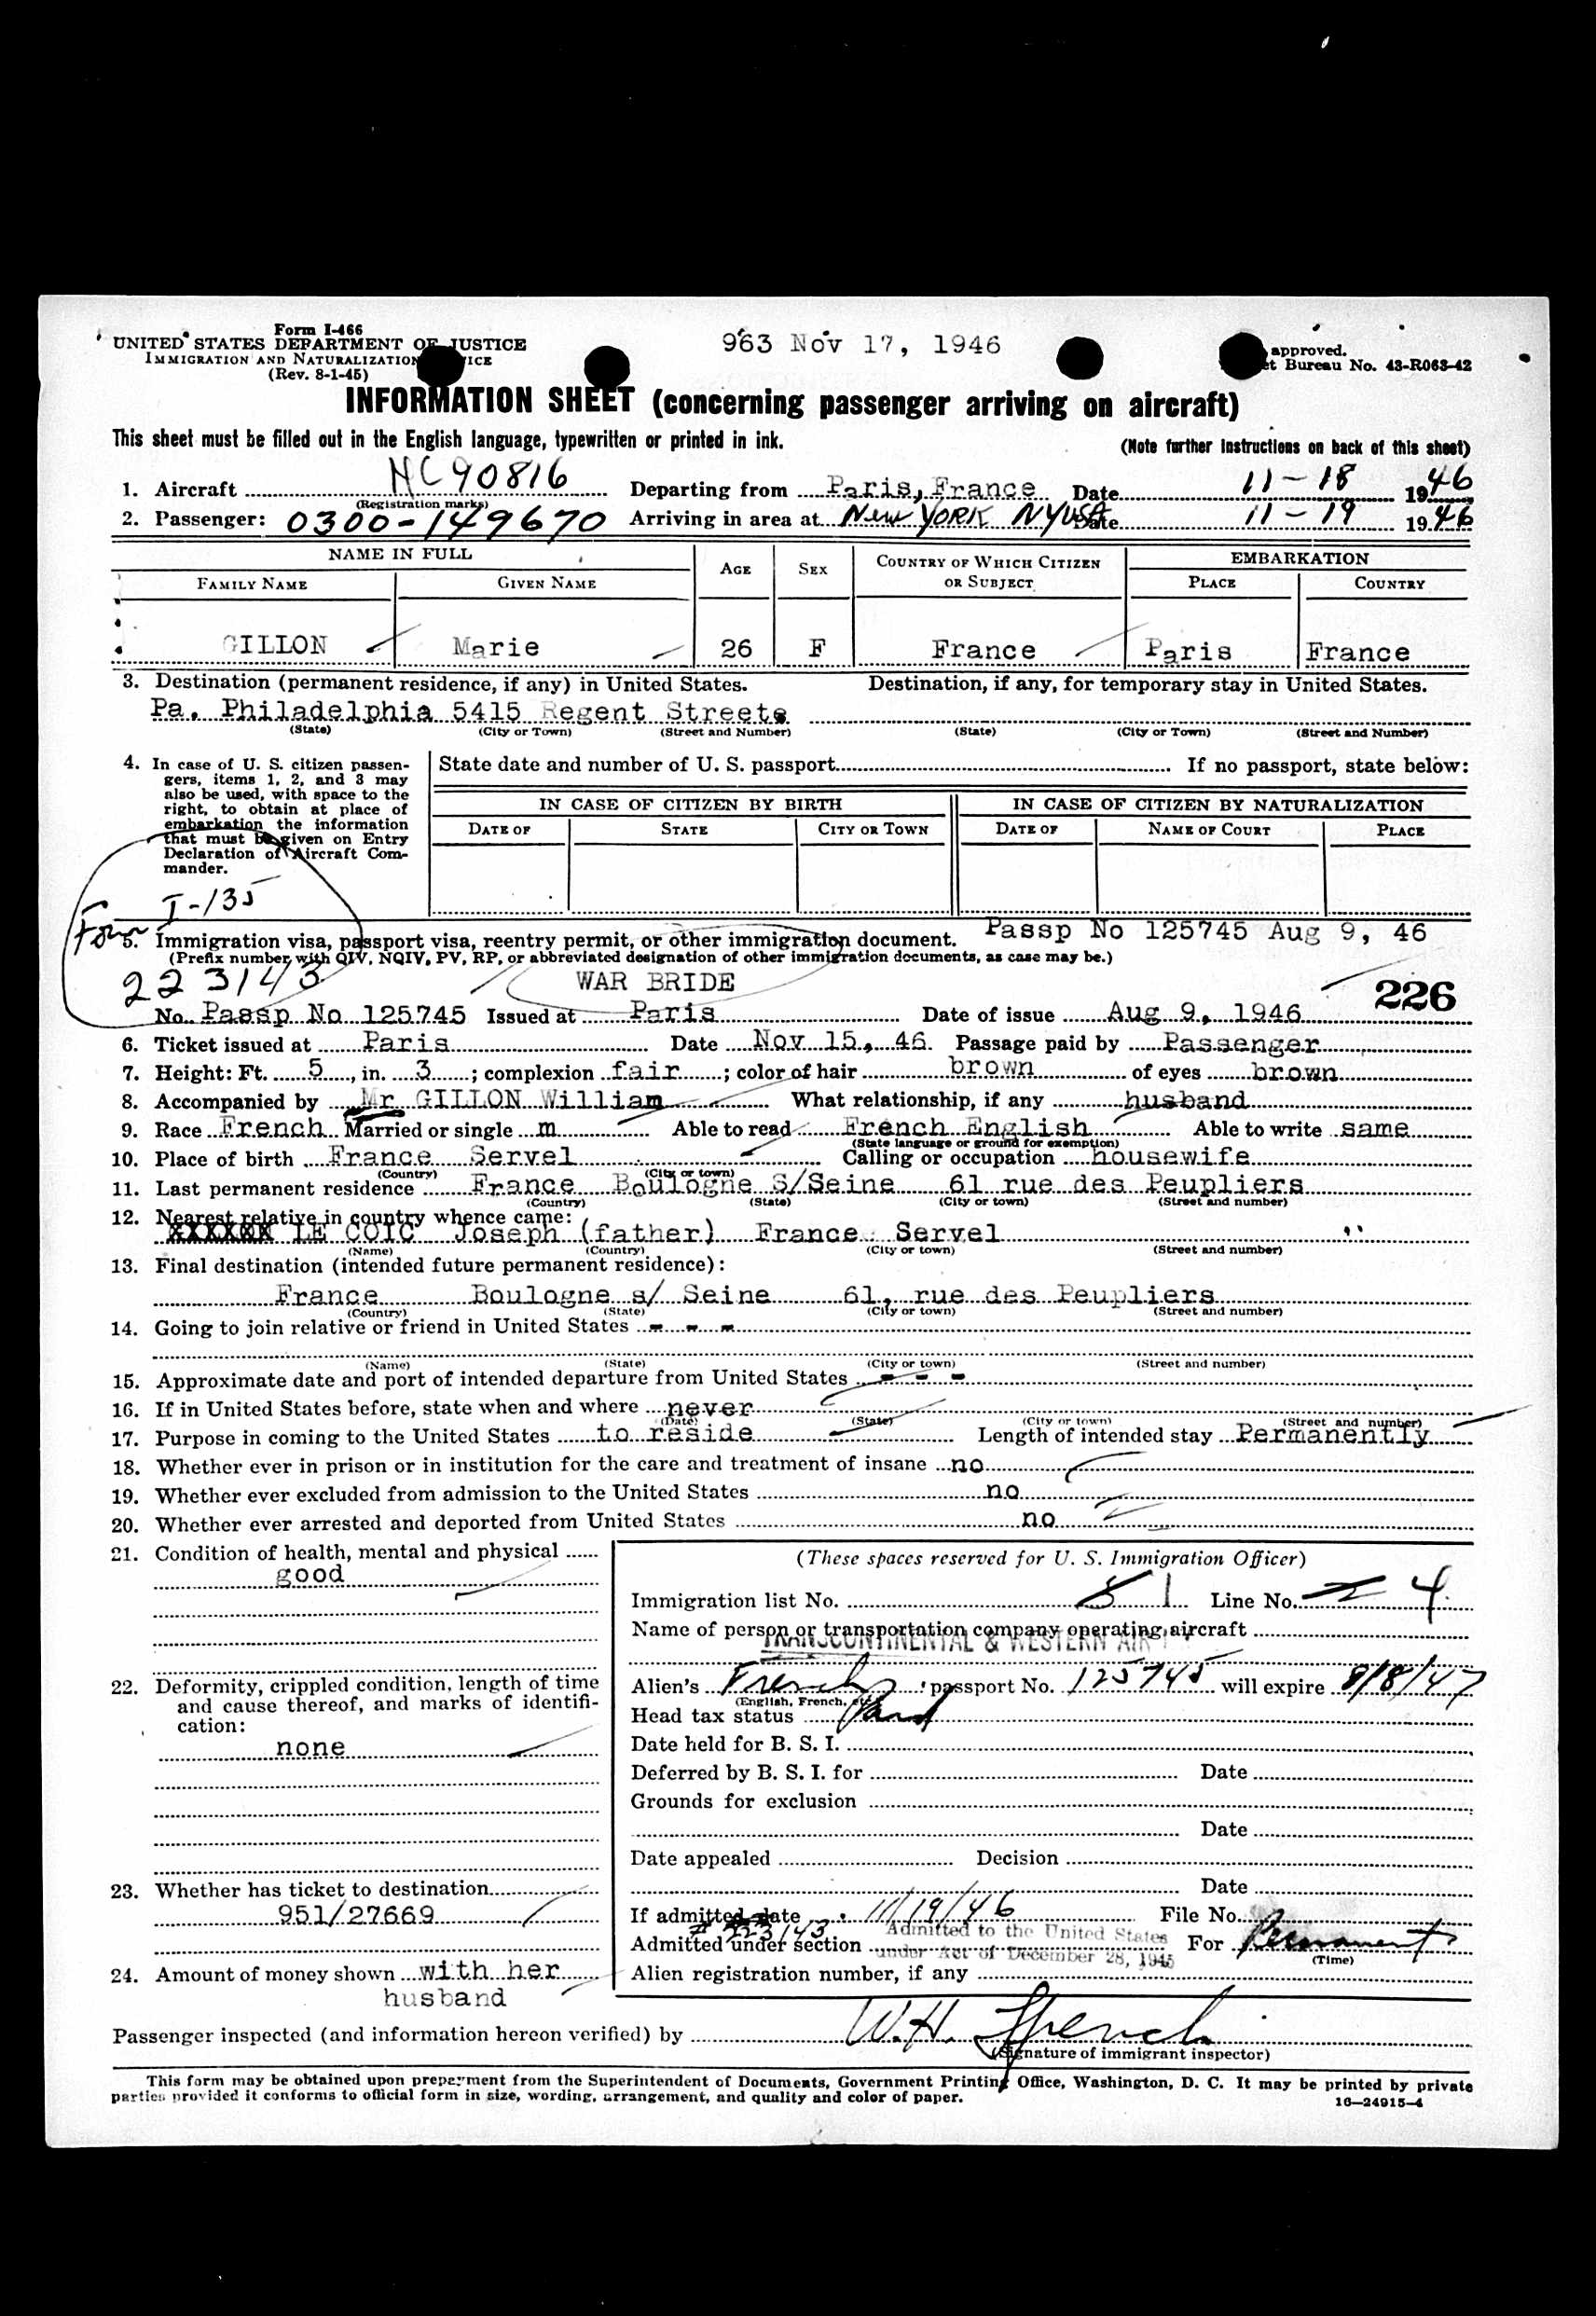 Form I-466
UNITED STATES DEPARTMENT OF JUSTICE
IMMIGRATION AND NATURALIZATION
(Rev. 8-1-45)
963 Nov 17, 1946
approved.
Bureau No. 43-R063-42
INFORMATION SHEET (concerning passenger arriving on aircraft)
This sheet must be filled out in the English language, typewritten or printed in ink.
(Note further instructions on back of this sheet)
1. Aircraft NC90816 Departing from Paris, France Date 11-18 1946
(Registration marks)
2. Passenger: 0300-149670 Arriving in area at New YORK NYUSA Date 11-19 1946
NAME IN FULL AGE SEX COUNTRY OF WHICH CITIZEN OR SUBJECT EMBARKATION
FAMILY NAME GIVEN NAME PLACE COUNTRY
GILLON Marie 26 F France Paris France
3. Destination (permanent residence, if any) in United States. Destination, if any, for temporary stay in United States.
Pa. Philadelphia 5415 Regent Streets
(State) (City or Town) (Street and Number) (State) (City or Town) (Street and Number)
4. In case of U. S. citizen passen-
gers, items 1, 2, and 3 may
also be used, with space to the
right, to obtain at place of
embarkation the information
that must be given on Entry
Declaration of Aircraft Com-
mander.
State date and number of U. S. passport If no passport, state below:
IN CASE OF CITIZEN BY BIRTH IN CASE OF CITIZEN BY NATURALIZATION
DATE OF STATE CITY OR TOWN DATE OF NAME OF COURT PLACE
Form I-135
223143
5. Immigration visa, passport visa, reentry permit, or other immigration document. Passp No 125745 Aug 9, 46
(Prefix number with QIV, NQIV, PV, RP, or abbreviated designation of other immigration documents, as case may be.)
WAR BRIDE
226
No. Passp No 125745 Issued at Paris Date of issue Aug 9, 1946
6. Ticket issued at Paris Date Nov 15, 46. Passage paid by Passenger
7. Height: Ft. 5, in. 3; complexion fair; color of hair brown of eyes brown
8. Accompanied by Mr GILLON William What relationship, if any husband
9. Race French Married or single m Able to read French English Able to write same
(State language or ground for exemption)
10. Place of birth France Servel Calling or occupation housewife
(Country) (City or town)
11. Last permanent residence France Boulogne S/Seine 61 rue des Peupliers
(Country) (State) (City or town) (Street and number)
12. Nearest relative in country whence came:
XXXXXX LE COIC Joseph (father) France Servel
(Name) (Country) (City or town) (Street and number)
13. Final destination (intended future permanent residence):
France Boulogne s/ Seine 61, rue des Peupliers
(Country) (State) (City or town) (Street and number)
14. Going to join relative or friend in United States - - -
(Name) (State) (City or town) (Street and number)
15. Approximate date and port of intended departure from United States - - -
16. If in United States before, state when and where never
(Date) (State) (City or town) (Street and number)
17. Purpose in coming to the United States to reside Length of intended stay Permanently
18. Whether ever in prison or in institution for the care and treatment of insane no
19. Whether ever excluded from admission to the United States no
20. Whether ever arrested and deported from United States no
21. Condition of health, mental and physical
good
22. Deformity, crippled condition, length of time
and cause thereof, and marks of identifi-
cation:
none
23. Whether has ticket to destination
951/27669
24. Amount of money shown with her
husband
(These spaces reserved for U. S. Immigration Officer)
Immigration list No. 1 Line No. 4
Name of person or transportation company operating aircraft
TRANSCONTINENTAL & WESTERN AIR
Alien's French passport No. 125745 will expire 8/8/47
(English, French, etc.)
Head tax status Paid
Date held for B. S. I.
Deferred by B. S. I. for Date
Grounds for exclusion
Date
Date appealed Decision
Date
If admitted date 11/19/46 File No.
# 223143
Admitted under section Admitted to the United States under Act of December 28, 1945 For Permanent
(Time)
Alien registration number, if any
Passenger inspected (and information hereon verified) by W.H.
(Signature of immigrant inspector)
This form may be obtained upon prepayment from the Superintendent of Documents, Government Printing Office, Washington, D. C. It may be printed by private
parties provided it conforms to official form in size, wording, arrangement, and quality and color of paper.
16—24915-4